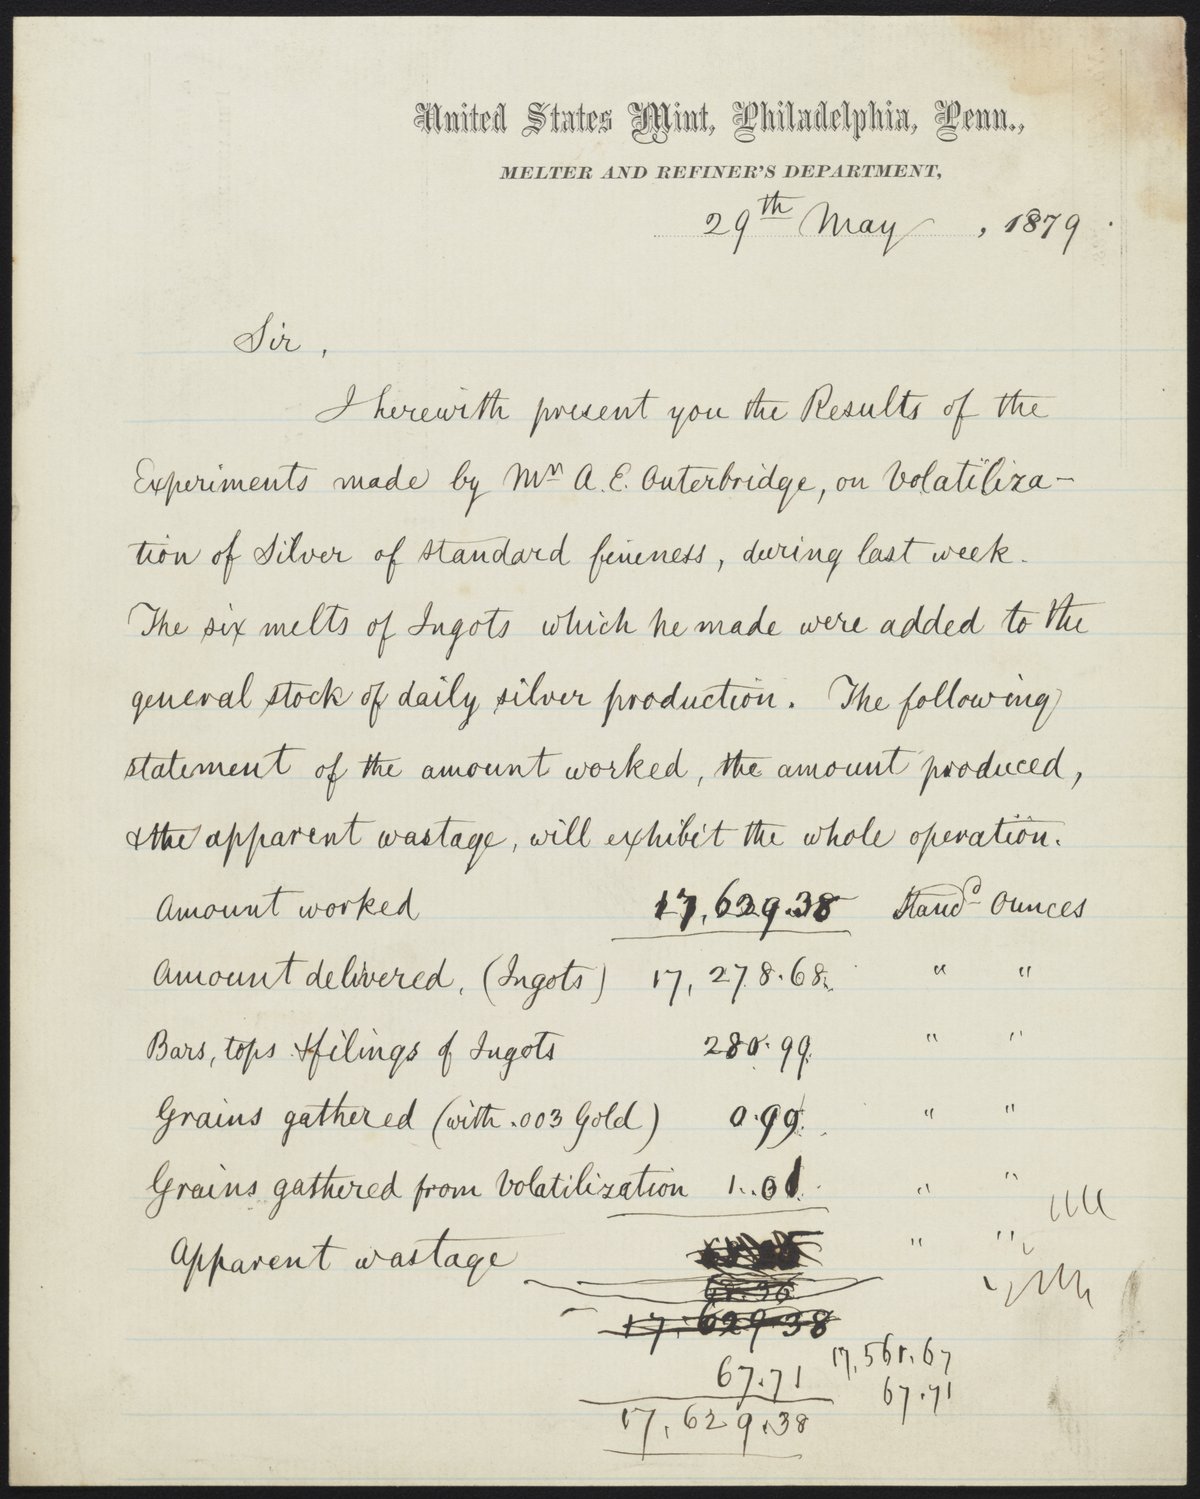 United States Mint, Philadelphia, Penn.,
MELTER AND REFINER'S DEPARTMENT,
29th May, 1879.
Sir,
I herewith present you the Results of the
Experiments made by Mr A. E. Outerbridge, on Volatiliza-
tion of Silver of standard fineness, during last week.
The six melts of Ingots which he made were added to the
general stock of daily silver production. The following
statement of the amount worked, the amount produced,
& the apparent wastage, will exhibit the whole operation.
Amount worked 17,629.38 Standd Ounces
Amount delivered, (Ingots) 17,278.68 " "
Bars, tops & filings of Ingots 280.99 " "
Grains gathered (with .003 Gold) 0.99 " "
Grains gathered from Volatilization 1.01 " "
Apparent wastage " "
17,629.38
67.71 17,561.67
17,629.38 67.71